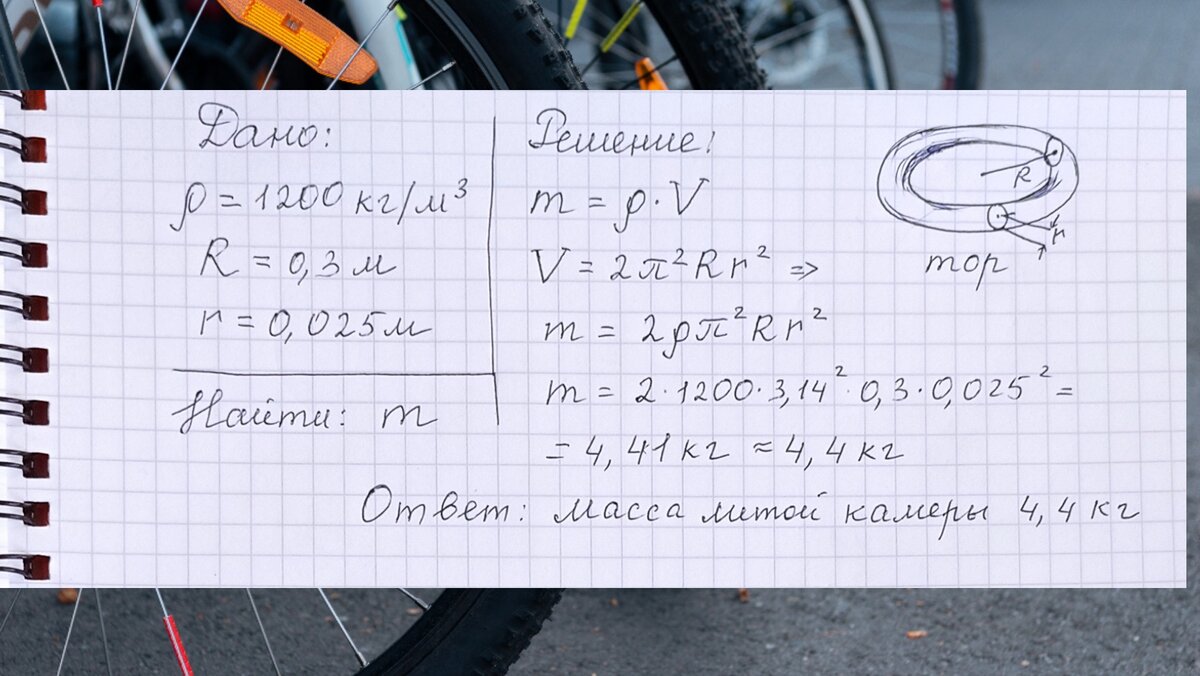 Дано:
ρ = 1200 кг/м³
R = 0,3 м
r = 0,025 м
Найти: m
Решение:
m = ρ · V
V = 2π²Rr² =>
m = 2ρπ²Rr²
m = 2 · 1200 · 3,14² · 0,3 · 0,025² =
= 4,41 кг ≈ 4,4 кг
R
r
тор
Ответ: масса литой камеры 4,4 кг